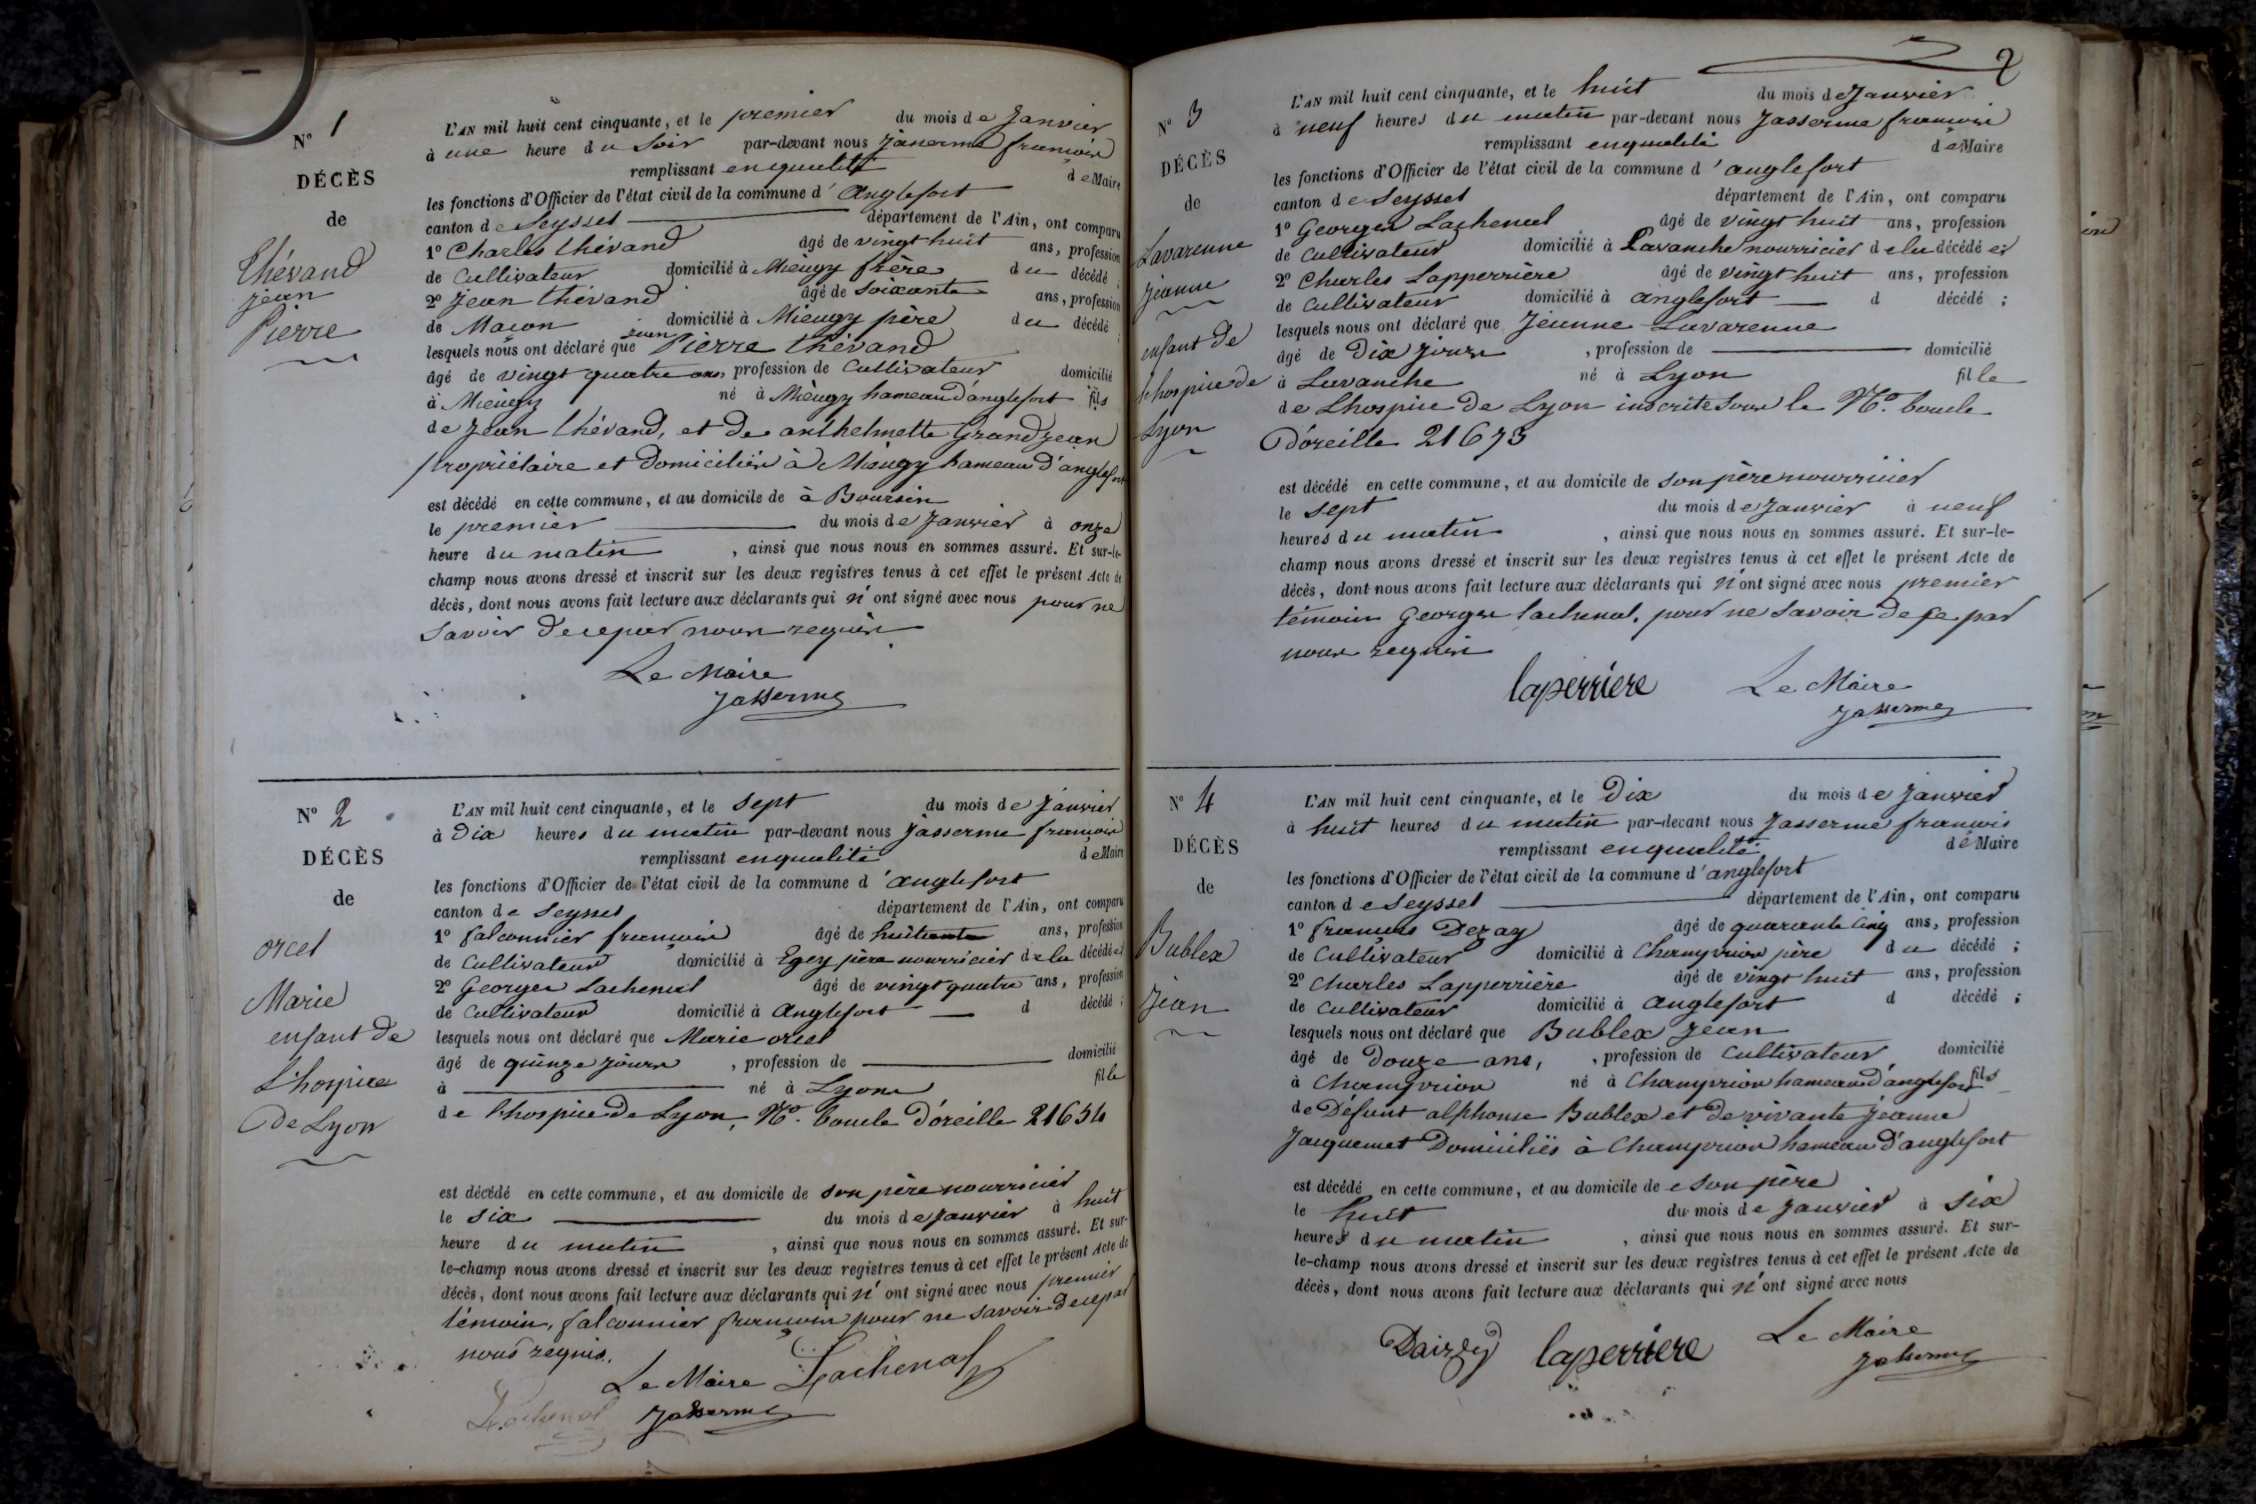 N° 1
DÉCÈS
de
Thévand
jean
Pierre
L'AN mil huit cent cinquante, et le premier du mois de Janvier
à une heure du soir par-devant nous Jasserme françois
remplissant en qualité de Maire
les fonctions d'Officier de l'état civil de la commune d'anglefort
canton de Seyssel département de l'Ain, ont comparu
1° Charles thévand âgé de vingt huit ans, profession
de Cultivateur domicilié à Mieugy frère du décédé ;
2° jean thévand âgé de soixante ans, profession
de Maçon domicilié à Mieugy père du décédé ;
lesquels nous ont déclaré que jean Pierre thévand
âgé de vingt quatre ans, profession de Cultivateur domicilié
à Mieugy né à Mieugy hameau d'anglefort fils
de jean thévand, et de anthelmette Grandjean
propriétaire et domiciliés à Mieugy hameau d'anglefort
est décédé en cette commune, et au domicile de à Boursin
le premier du mois de janvier à onze
heure du matin, ainsi que nous nous en sommes assuré. Et sur-le-
champ nous avons dressé et inscrit sur les deux registres tenus à cet effet le présent Acte de
décès, dont nous avons fait lecture aux déclarants qui n'ont signé avec nous pour ne
savoir de ce par nous requis
Le Maire
Jasserme
N° 2
DÉCÈS
de
orcel
Marie
enfant de
L'hospice
De Lyon
L'AN mil huit cent cinquante, et le sept du mois de janvier
à Dix heures du matin par-devant nous jasserme françois
remplissant en qualité de Maire
les fonctions d'Officier de l'état civil de la commune d'anglefort
canton de Seyssel département de l'Ain, ont comparu
1° falconnier françois âgé de huitante ans, profession
de Cultivateur domicilié à Egey père nourricier de la décédé et
2° Georges Lachenal âgé de vingt quatre ans, profession
de Cultivateur domicilié à Anglefort d décédé ;
lesquels nous ont déclaré que Marie orcel
âgé de quinze jours, profession de domicilié
à né à Lyon fille
de l'hospice de Lyon, N°. boucle d'oreille 21654
est décédé en cette commune, et au domicile de son père nourricier
le six du mois de janvier à huit
heure du matin, ainsi que nous nous en sommes assuré. Et sur-
le-champ nous avons dressé et inscrit sur les deux registres tenus à cet effet le présent Acte de
décès, dont nous avons fait lecture aux déclarants qui n'ont signé avec nous premier
témoin, falconnier françois pour ne savoir de ce par
nous requis.
Le Maire Lachenal
Lachenal Jasserme
2
N° 3
DÉCÈS
de
Lavarenne
jeanne
enfant de
l'hospice de
Lyon
L'AN mil huit cent cinquante, et le huit du mois de Janvier
à neuf heures du matin par-devant nous Jasserme françois
remplissant en qualité de Maire
les fonctions d'Officier de l'état civil de la commune d'anglefort
canton de Seyssel département de l'Ain, ont comparu
1° Georges Lachenal âgé de vingt huit ans, profession
de Cultivateur domicilié à Lavanche nourricier de la décédé et
2° Charles Lapperrière âgé de vingt huit ans, profession
de Cultivateur domicilié à anglefort d décédé ;
lesquels nous ont déclaré que Jeanne Lavarenne
âgé de Dix jours, profession de domicilié
à Lavanche né à Lyon fille
de L'hospice de Lyon inscrite sous le N°. boucle
D'oreille 21673
est décédé en cette commune, et au domicile de son père nourricier
le sept du mois de janvier à neuf
heures du matin, ainsi que nous nous en sommes assuré. Et sur-le-
champ nous avons dressé et inscrit sur les deux registres tenus à cet effet le présent Acte de
décès, dont nous avons fait lecture aux déclarants qui n'ont signé avec nous premier
témoin Georges lachenal, pour ne savoir de ce par
nous requis
laperriere Le Maire
Jasserme
N° 4
DÉCÈS
de
Bublex
jean
L'AN mil huit cent cinquante, et le Dix du mois de janvier
à huit heures du matin par-devant nous Jasserme françois
remplissant en qualité de Maire
les fonctions d'Officier de l'état civil de la commune d'anglefort
canton de Seyssel département de l'Ain, ont comparu
1° françois Dezay âgé de quarante cinq ans, profession
de Cultivateur domicilié à Champrion père du décédé ;
2° Charles Lapperrière âgé de vingt huit ans, profession
de Cultivateur domicilié à anglefort d décédé ;
lesquels nous ont déclaré que Bublex jean
âgé de Douze ans, profession de Cultivateur domicilié
à Champrion né à Champrion hameau d'anglefort fils
de Défunt alphonse Bublex et de vivante jeanne
Jacquemet Domiciliés à Champrion hameau d'anglefort
est décédé en cette commune, et au domicile de son père
le huit du mois de janvier à six
heures du matin, ainsi que nous nous en sommes assuré. Et sur-
le-champ nous avons dressé et inscrit sur les deux registres tenus à cet effet le présent Acte de
décès, dont nous avons fait lecture aux déclarants qui n'ont signé avec nous
laperriere Le Maire
Jasserme